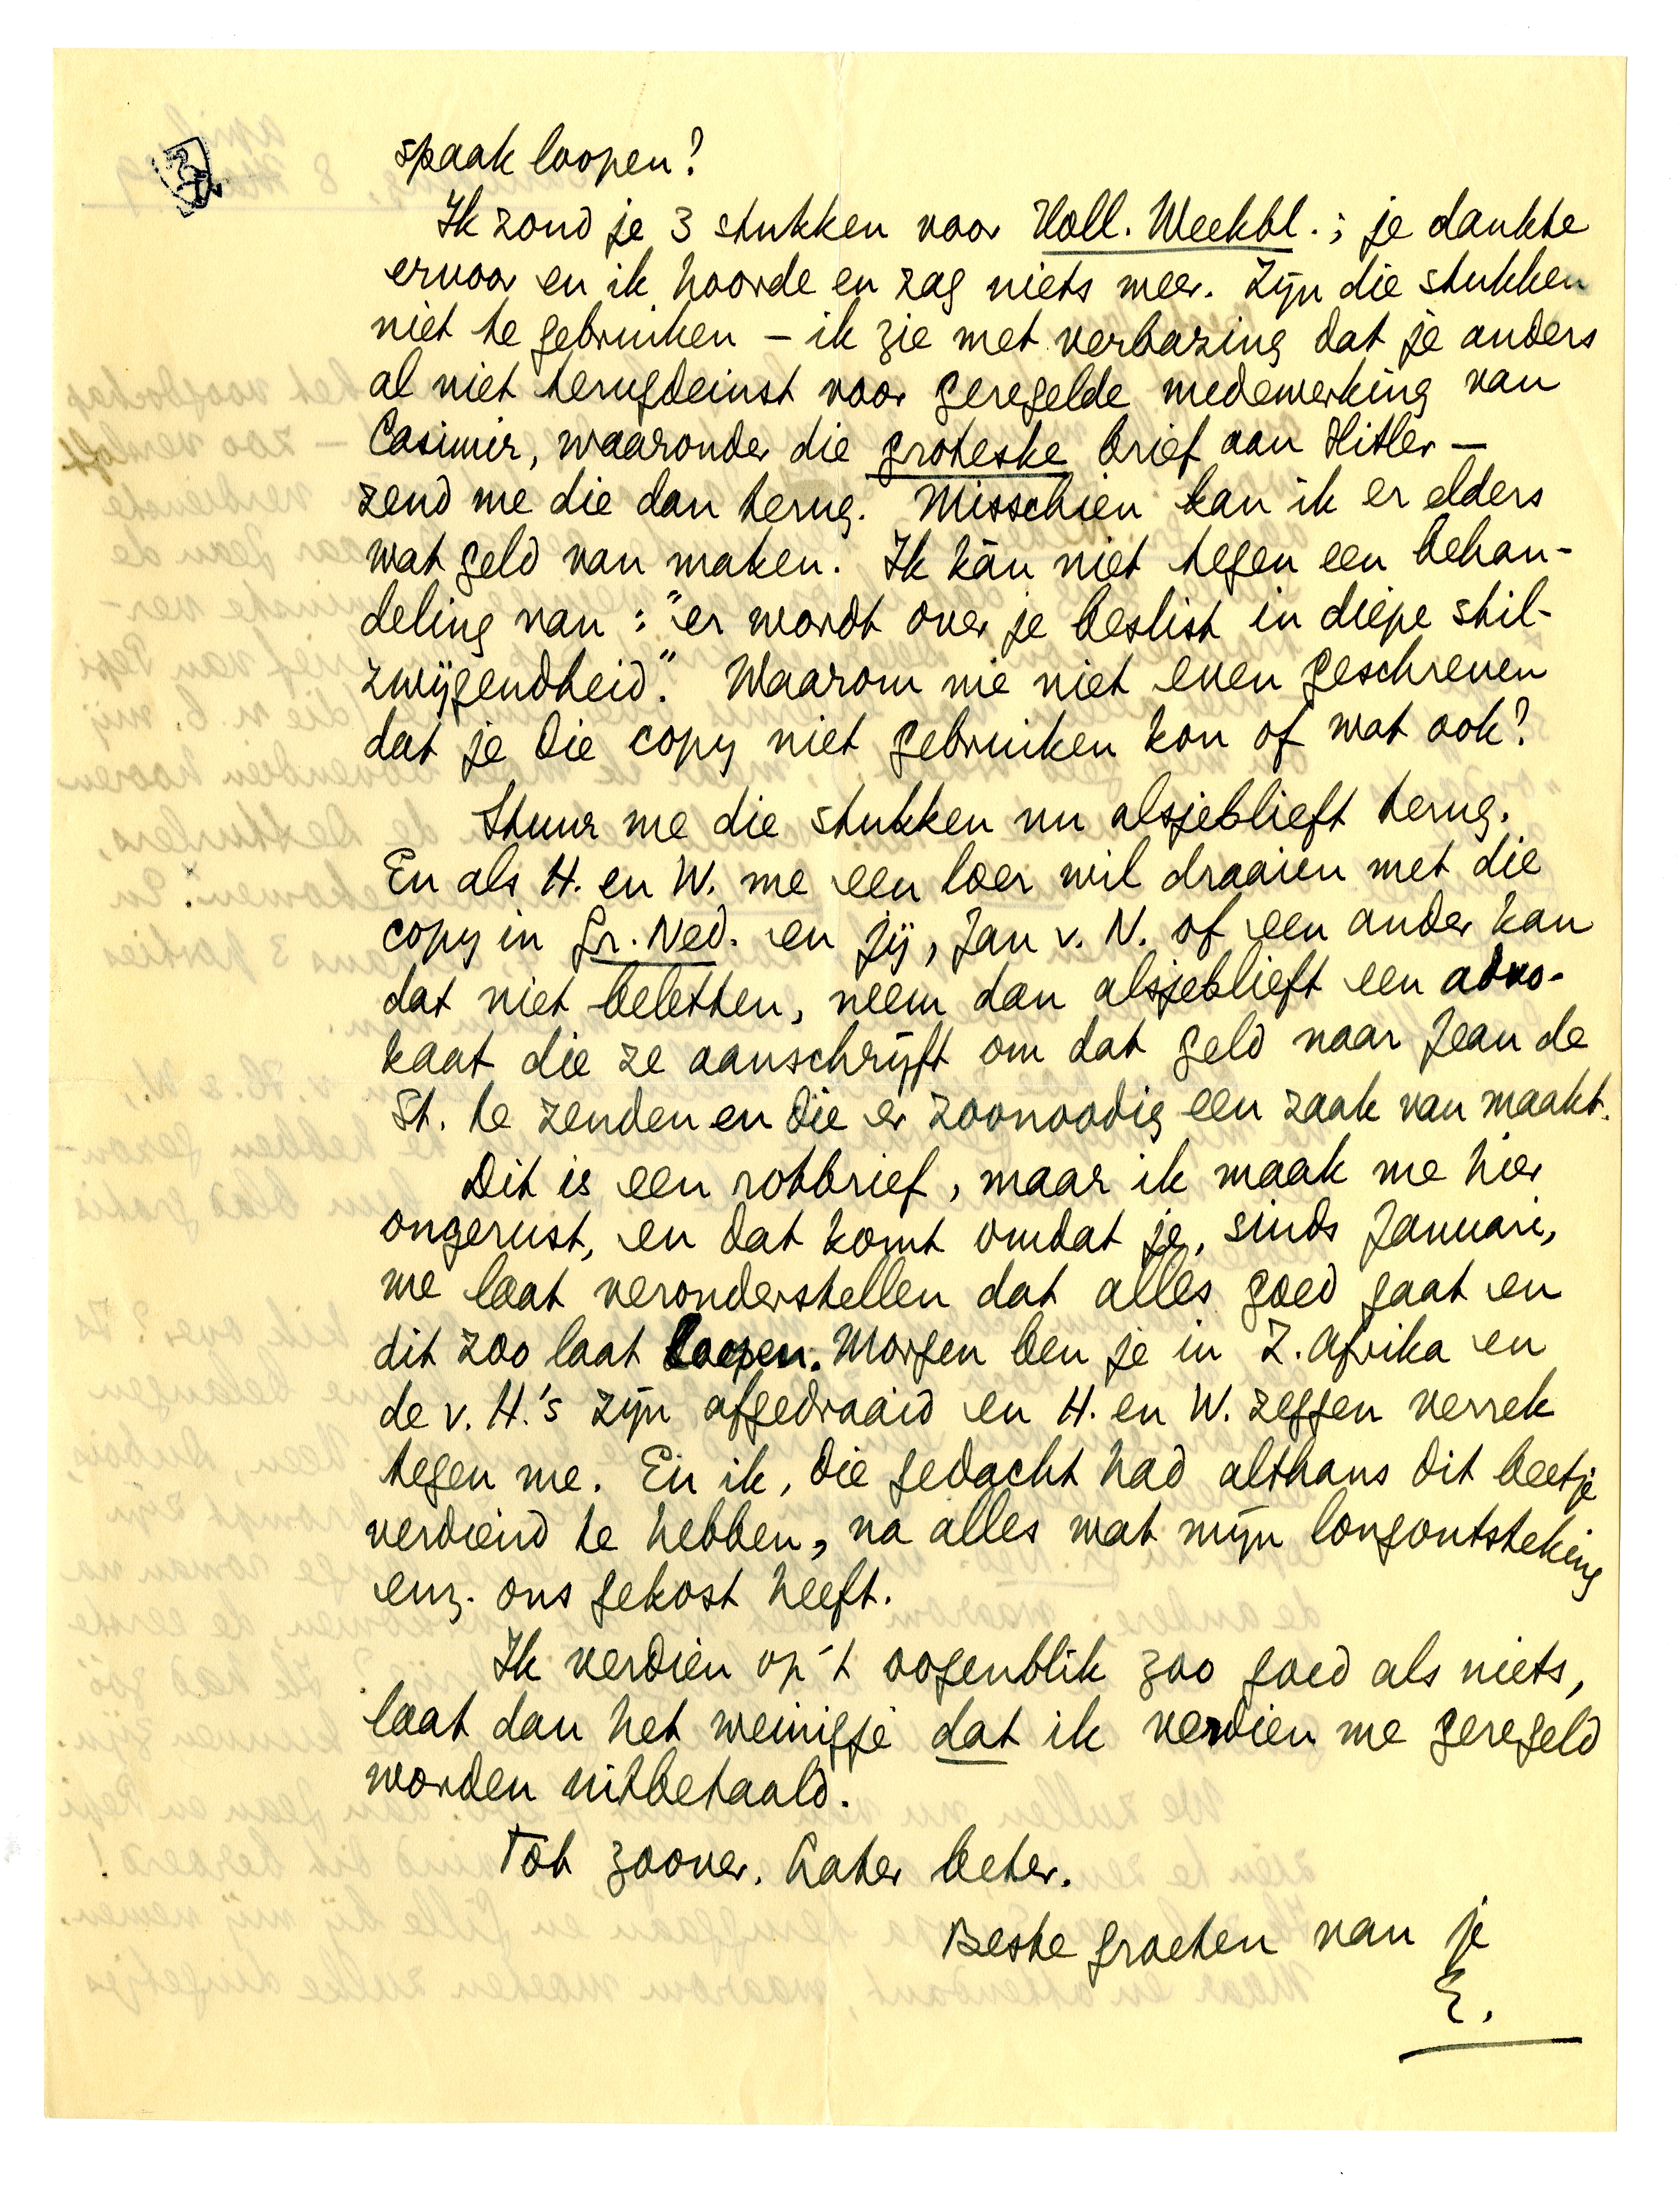 spaak loopen?
Ik zond je 3 stukken voor Holl. Weekbl.; je dankte
ervoor en ik hoorde en zag niets meer. Zijn die stukken
niet te gebruiken – ik zie met verbazing dat je anders
al niet terugdeinst voor geregelde medewerking van
Casimir, waaronder die groteske brief aan Hitler –
zend me die dan terug. Misschien kan ik er elders
wat geld van maken. Ik kán niet tegen een behan-
deling van: "er wordt over je beslist in diepe stil-
zwijgendheid". Waarom me niet even geschreven
dat je die copy niet gebruiken kon of wat ook?
Stuur me die stukken nu alsjeblieft terug.
En als H. en W. me een loer wil draaien met die
copy in Gr. Ned. en jij, Jan v. N. of een ander kan
dat niet beletten, neem dan alsjeblieft een advo-
kaat die ze aanschrijft om dat geld naar Jean de
St. te zenden en die er zoonoodig een zaak van maakt.
Dit is een rotbrief, maar ik maak me hier
ongerust, en dat komt omdat je, sinds Januari,
me laat veronderstellen dat alles goed gaat en
dit zoo laat loopen. Morgen ben je in Z. Afrika en
de v. H.'s zijn afgedraaid en H. en W. zeggen verrek
tegen me. En ik, die gedacht had althans dit beetje
verdiend te hebben, na alles wat mijn longontsteking
enz. ons gekost heeft.
Ik verdien op 't oogenblik zoo goed als niets,
laat dan het weinigje dat ik verdien me geregeld
worden uitbetaald.
Tot zoover. Later beter.
Beste groeten van je
E.